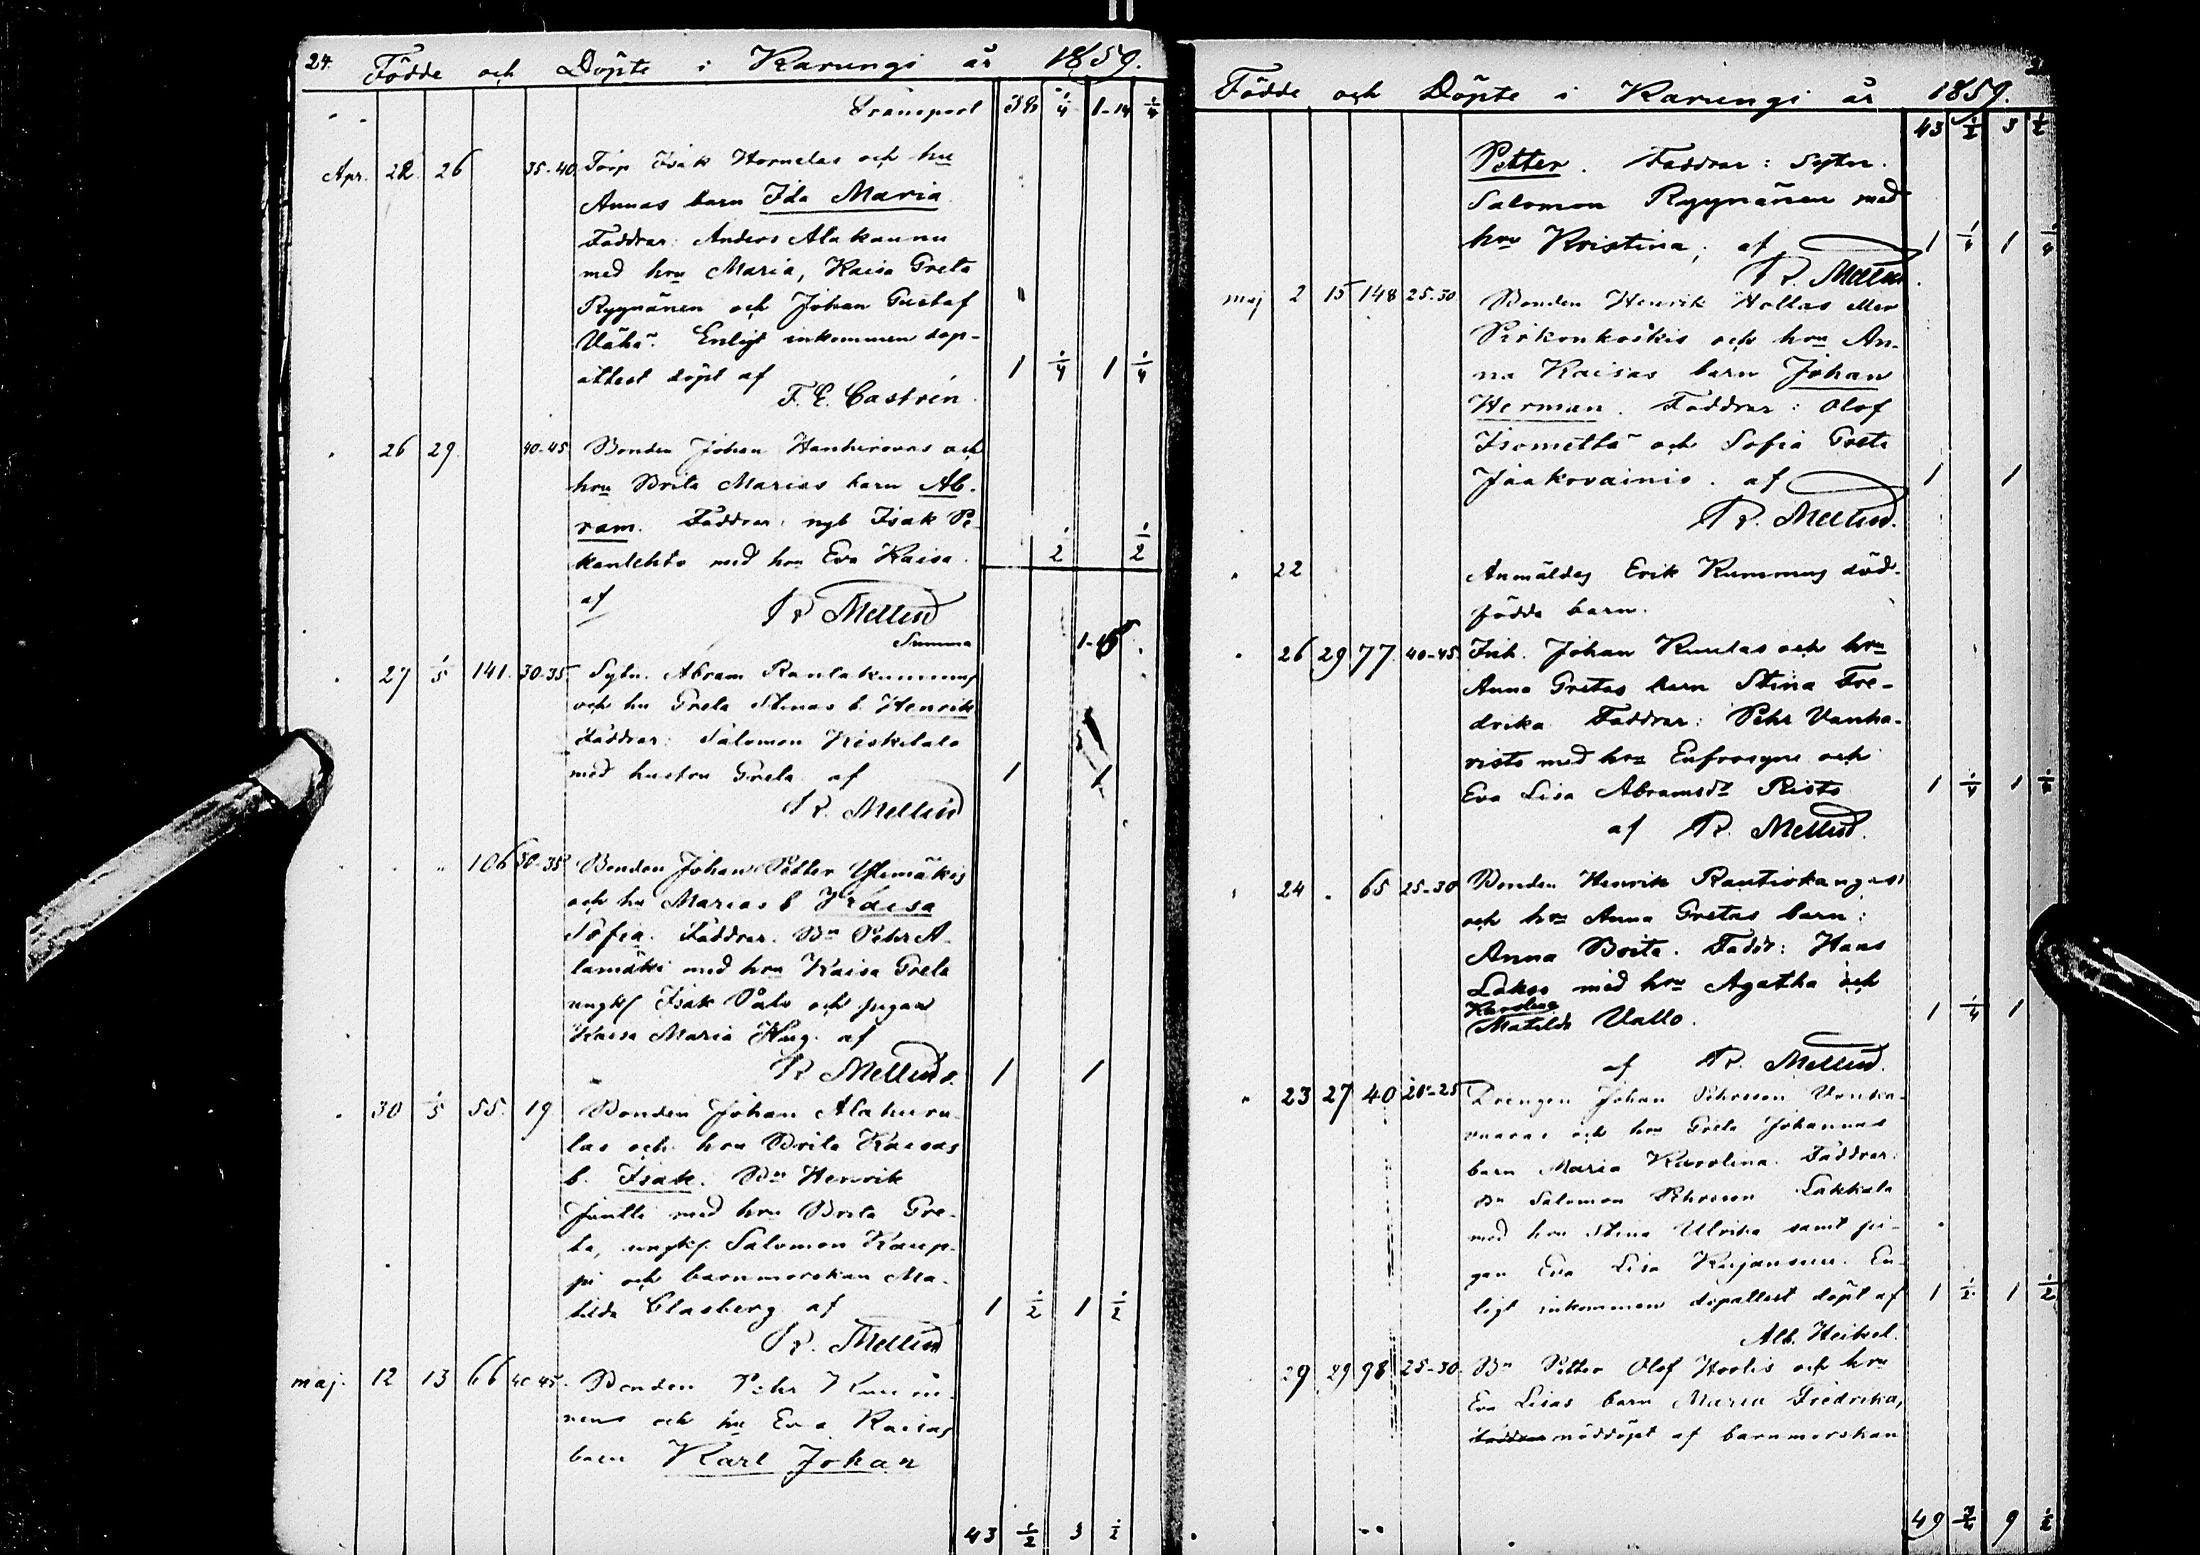 24. Födde och Döpte i Karungi år 1859.
Transport 38 1/4 1-14 1/4
Apr. 22 26 35-40 Torp Isak Hornelas och hu
Annas barn Ida Maria
Faddrar: Anders Alakannu
med hru Maria, Kaisa Greta
Ryynänen och Johan Gustaf
Vähä. Enligt inkommen dop-
attest döpt af 1 1/4 1 1/4
F. E. Castrén.
26 29. 40-45 Bonden Johan Hanhirovas och
hru Brita Marias barn Ab-
ram. Faddrar: nyb Isak Pe-
kanlehto med hru Eva Kaisa. 1/2 1/2
af R Mellin
Summa
27 1/5 141. 30-35 Sytn. Abram Rantakummus
och hu Greta Stinas b. Henrik
Faddrar: Salomon Kiskilalo
med hustru Greta af 1 1
R. Mellin
" " 106 30-35 Bonden Johan Petter Ylimäkis
och hu Marias b Kaisa
Sofia. Faddrar. Bn Pehr A-
lamäki med hru Kaisa Greta
ungk Isak Palo och pigan
Kaisa Maria Haig. af
R Mellin. 1 1
30 1/5 55. 19. Bonden Johan Alahuru-
las och hru Brita Kaisas
b. Isak. Bn Henrik
Juntti med hru Brita Gre-
ta, ungk. Salomon Kaup-
pi och barnmorskan Ma-
tilda Clasberg af 1 1/2 1 1/2
R. Mellin
maj. 12 13 66 40-45. Bonden Pehr
och hu Eva Kaisas
barn Karl Johan
43 1/2 3 1/2
Födde och Döpte i Karungi år 1859.
43 1/2 3 1/2
Petter. Faddrar: Sytn.
Salomon Ryynänen med
hru Kristina, af 1 1/4 1 1/4
R. Mellin.
maj 2 15 148 25-30 Bonden Henrik Hottas eller
Pirkonkoskis och hru An-
na Kaisas barn Johan
Herman. Faddrar: Olof
Isometsä och Sofia Greta
Jaakovainio. af 1 1
R. Mellin.
" 22 Anmäldes Erik Kummus död-
födda barn.
" 26 29 77. 40-45 Inh. Johan Knutas och hru
Anna Gretas barn Stina Fre-
drika Faddrar: Pehr Vanha-
risto med hru Eufrosyne och
Eva Lisa Abramsdr Risto 1 1/4 1 1/4
af R. Mellin.
24 " 65 25-30 Bonden Henrik Rautiokangas
och hru Anna Gretas barn:
Anna Brita. Faddr: Hans
Lakso med hru Agatha och
Karolina
Matilda Vallo. 1 1/4 1
af R. Mellin.
" 23 27 40 20-25 Drengen Johan Pehrsson
och hru Greta Johannas
barn Maria Karolina. Faddrar:
Bn Salomon Pehrsson Lakkala
med hru Stina Ulrika samt pi-
gan Eva Lisa Karjanen. En-
ligt inkommen dopattest döpt af 1 1/2 1 1/2
Alb. Heikel.
29 29 98 25-30. Bn Petter Olof Hoolis och hru
Eva Lisas barn Maria Fredrika,
nöddöpt af barnmorskan
49 3/4 9 1/2